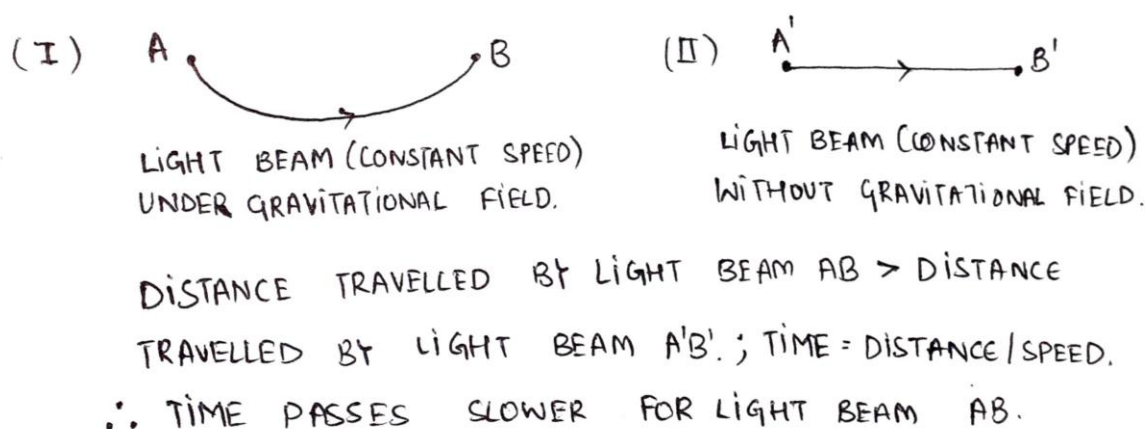 (I) A B (II) A' B'
LIGHT BEAM (CONSTANT SPEED)
UNDER GRAVITATIONAL FIELD.
LIGHT BEAM (CONSTANT SPEED)
WITHOUT GRAVITATIONAL FIELD.
DISTANCE TRAVELLED BY LIGHT BEAM AB > DISTANCE
TRAVELLED BY LIGHT BEAM A'B'.; TIME = DISTANCE/SPEED.
∴ TIME PASSES SLOWER FOR LIGHT BEAM AB.